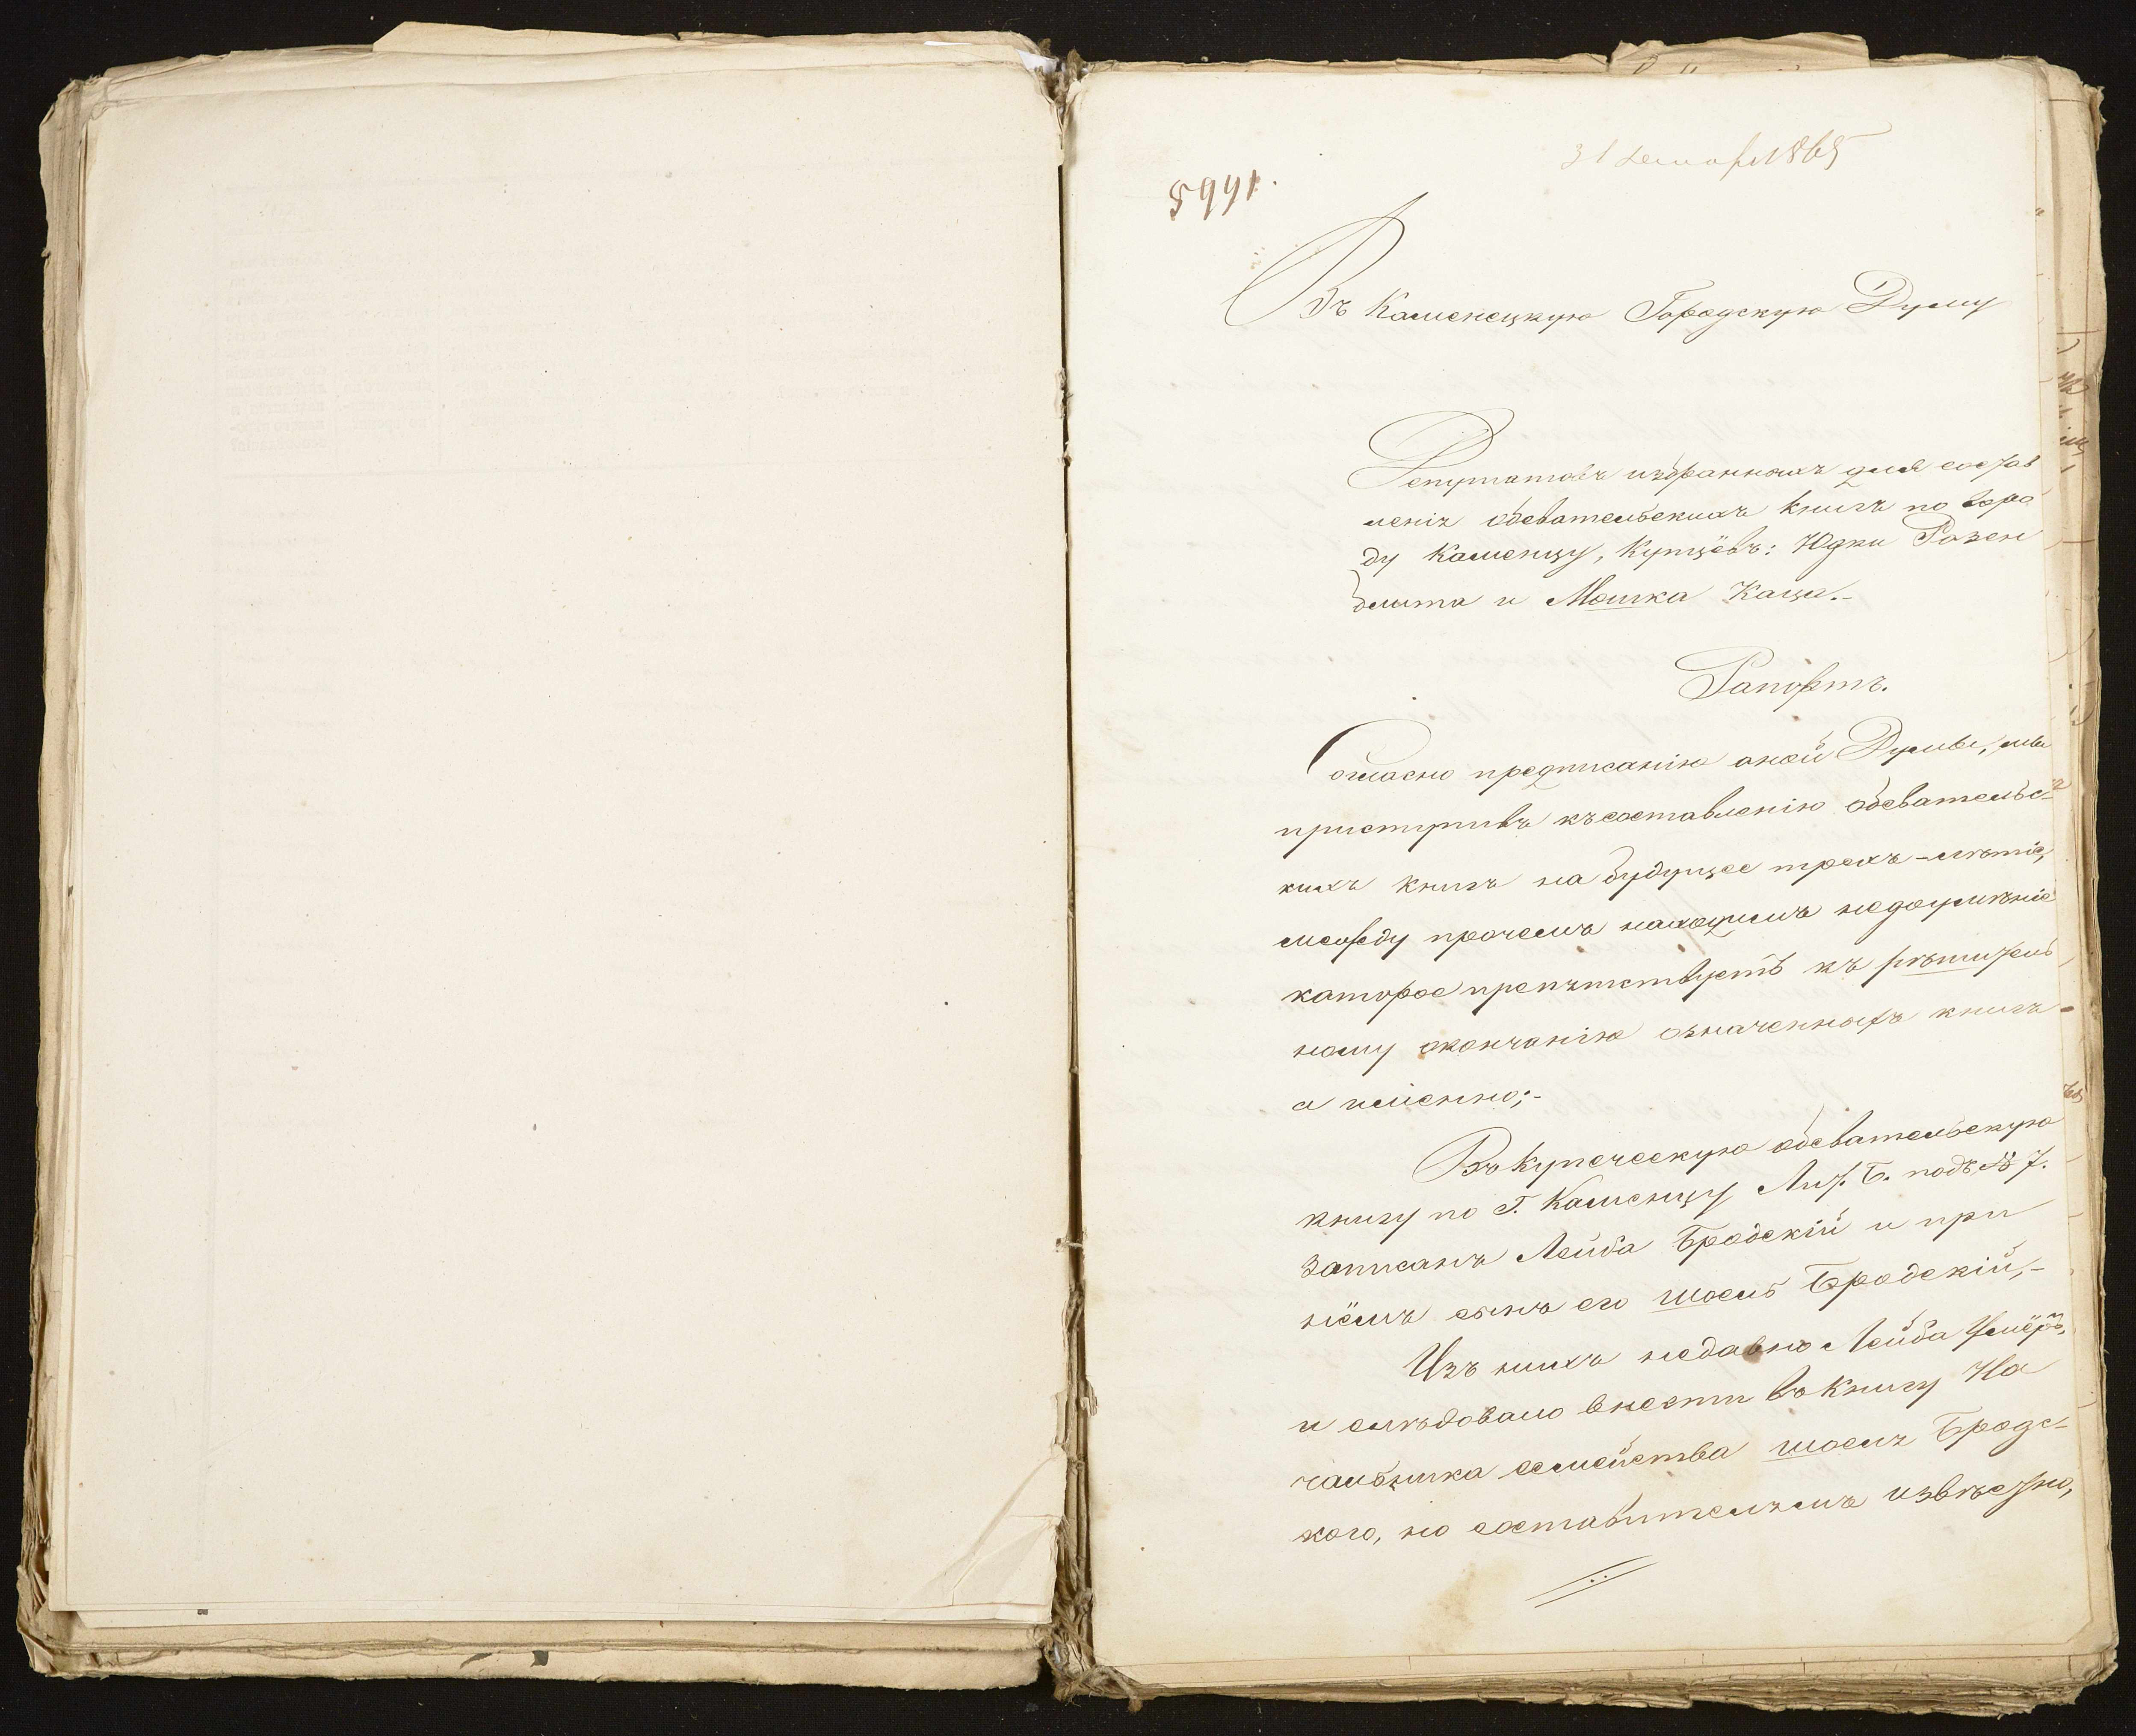 31 декабря 1865
5991.
Въ Каменецкую Городскую Думу
Депутатовъ избранныхъ для состав
ленія обевательскихъ книгъ по горо
ду Каменцу, Купцёвъ: Юдки Розен
блита и Мошка Каца.-
Рапортъ.
Согласно предписанію оной Думы, мы
приступивъ къ составленію обевательс-
кихъ книгъ на будущее трехъ-лѣтіе,
между прочемъ находимъ недоумѣніе
каторое препятствуетъ къ рѣшитель
ному окончанію означенныхъ книгъ
а именно;-
Въ купеческую обевательскую
книгу по Г. Каменцу Лит. Б. подъ № 7.
Записанъ Лейба Бродскій и при
нёмъ сынъ его Шоель Бродскій,-
Изъ нихъ недавно Лейба Умёръ,
и слѣдовало внести въ Книгу На
чальника семейства Шоеля Бродс-
кого, но составителямъ извѣстно,